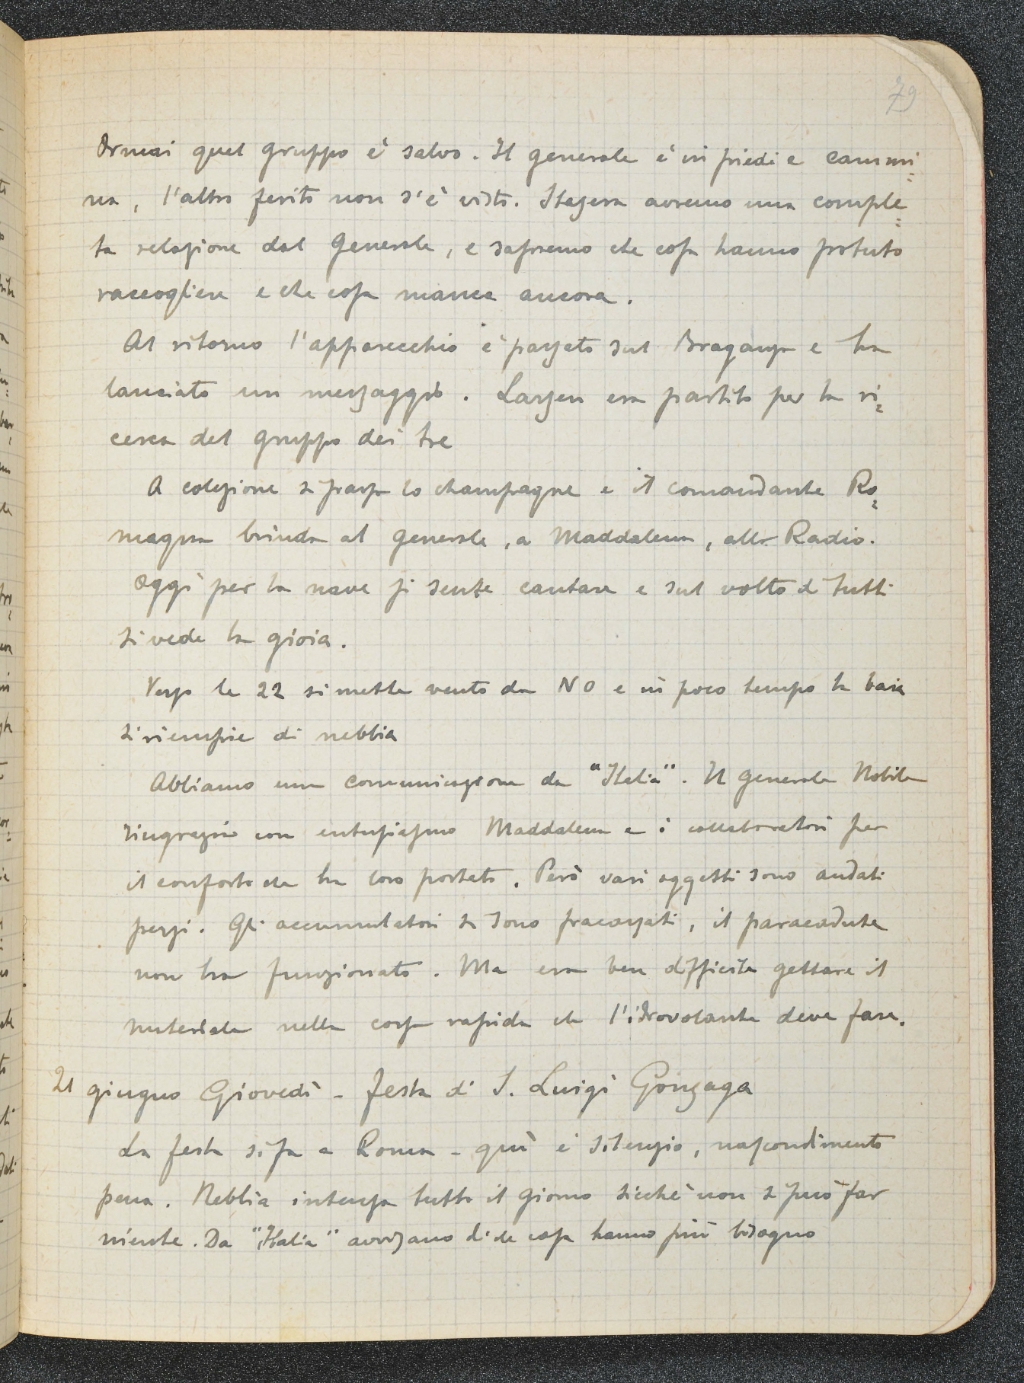 79
Ormai quel gruppo è salvo. Il generale è in piedi e cammi=
na, l'altro ferito non s'è visto. Stasera avremo una comple=
ta relazione dal Generale, e sapremo che cosa hanno potuto
raccogliere e che cosa manca ancora.
Al ritorno l'apparecchio è passato sul Braganza e ha
lanciato un messaggio. Larsen era partito per la ri=
cerca del gruppo dei tre
A colezione si passa lo champagne e il comandante Ro=
magna brinda al generale, a Maddalena, alla Radio.
Oggi per la nave si sente cantare e sul volto di tutti
si vede la gioia.
Verso le 22 si mette vento da NO e in poco tempo la baia
si riempie di nebbia
Abbiamo una comunicazione da "Italia". Il generale Nobile
ringrazia con entusiasmo Maddalena e i collaboratori per
il conforto che ha loro portato. Però vari oggetti sono andati
persi. Gli accumulatori si sono fracassati, il paracadute
non ha funzionato. Ma era ben difficile gettare il
materiale nella corsa rapida che l'idrovolante deve fare.
21 giugno Giovedì - festa di S. Luigi Gonzaga
La festa si fa a Roma - qui è silenzio, nascondimento
pena. Nebbia intensa tutto il giorno sicché non si può far
niente. Da "Italia" avvisano di che cosa hanno più bisogno